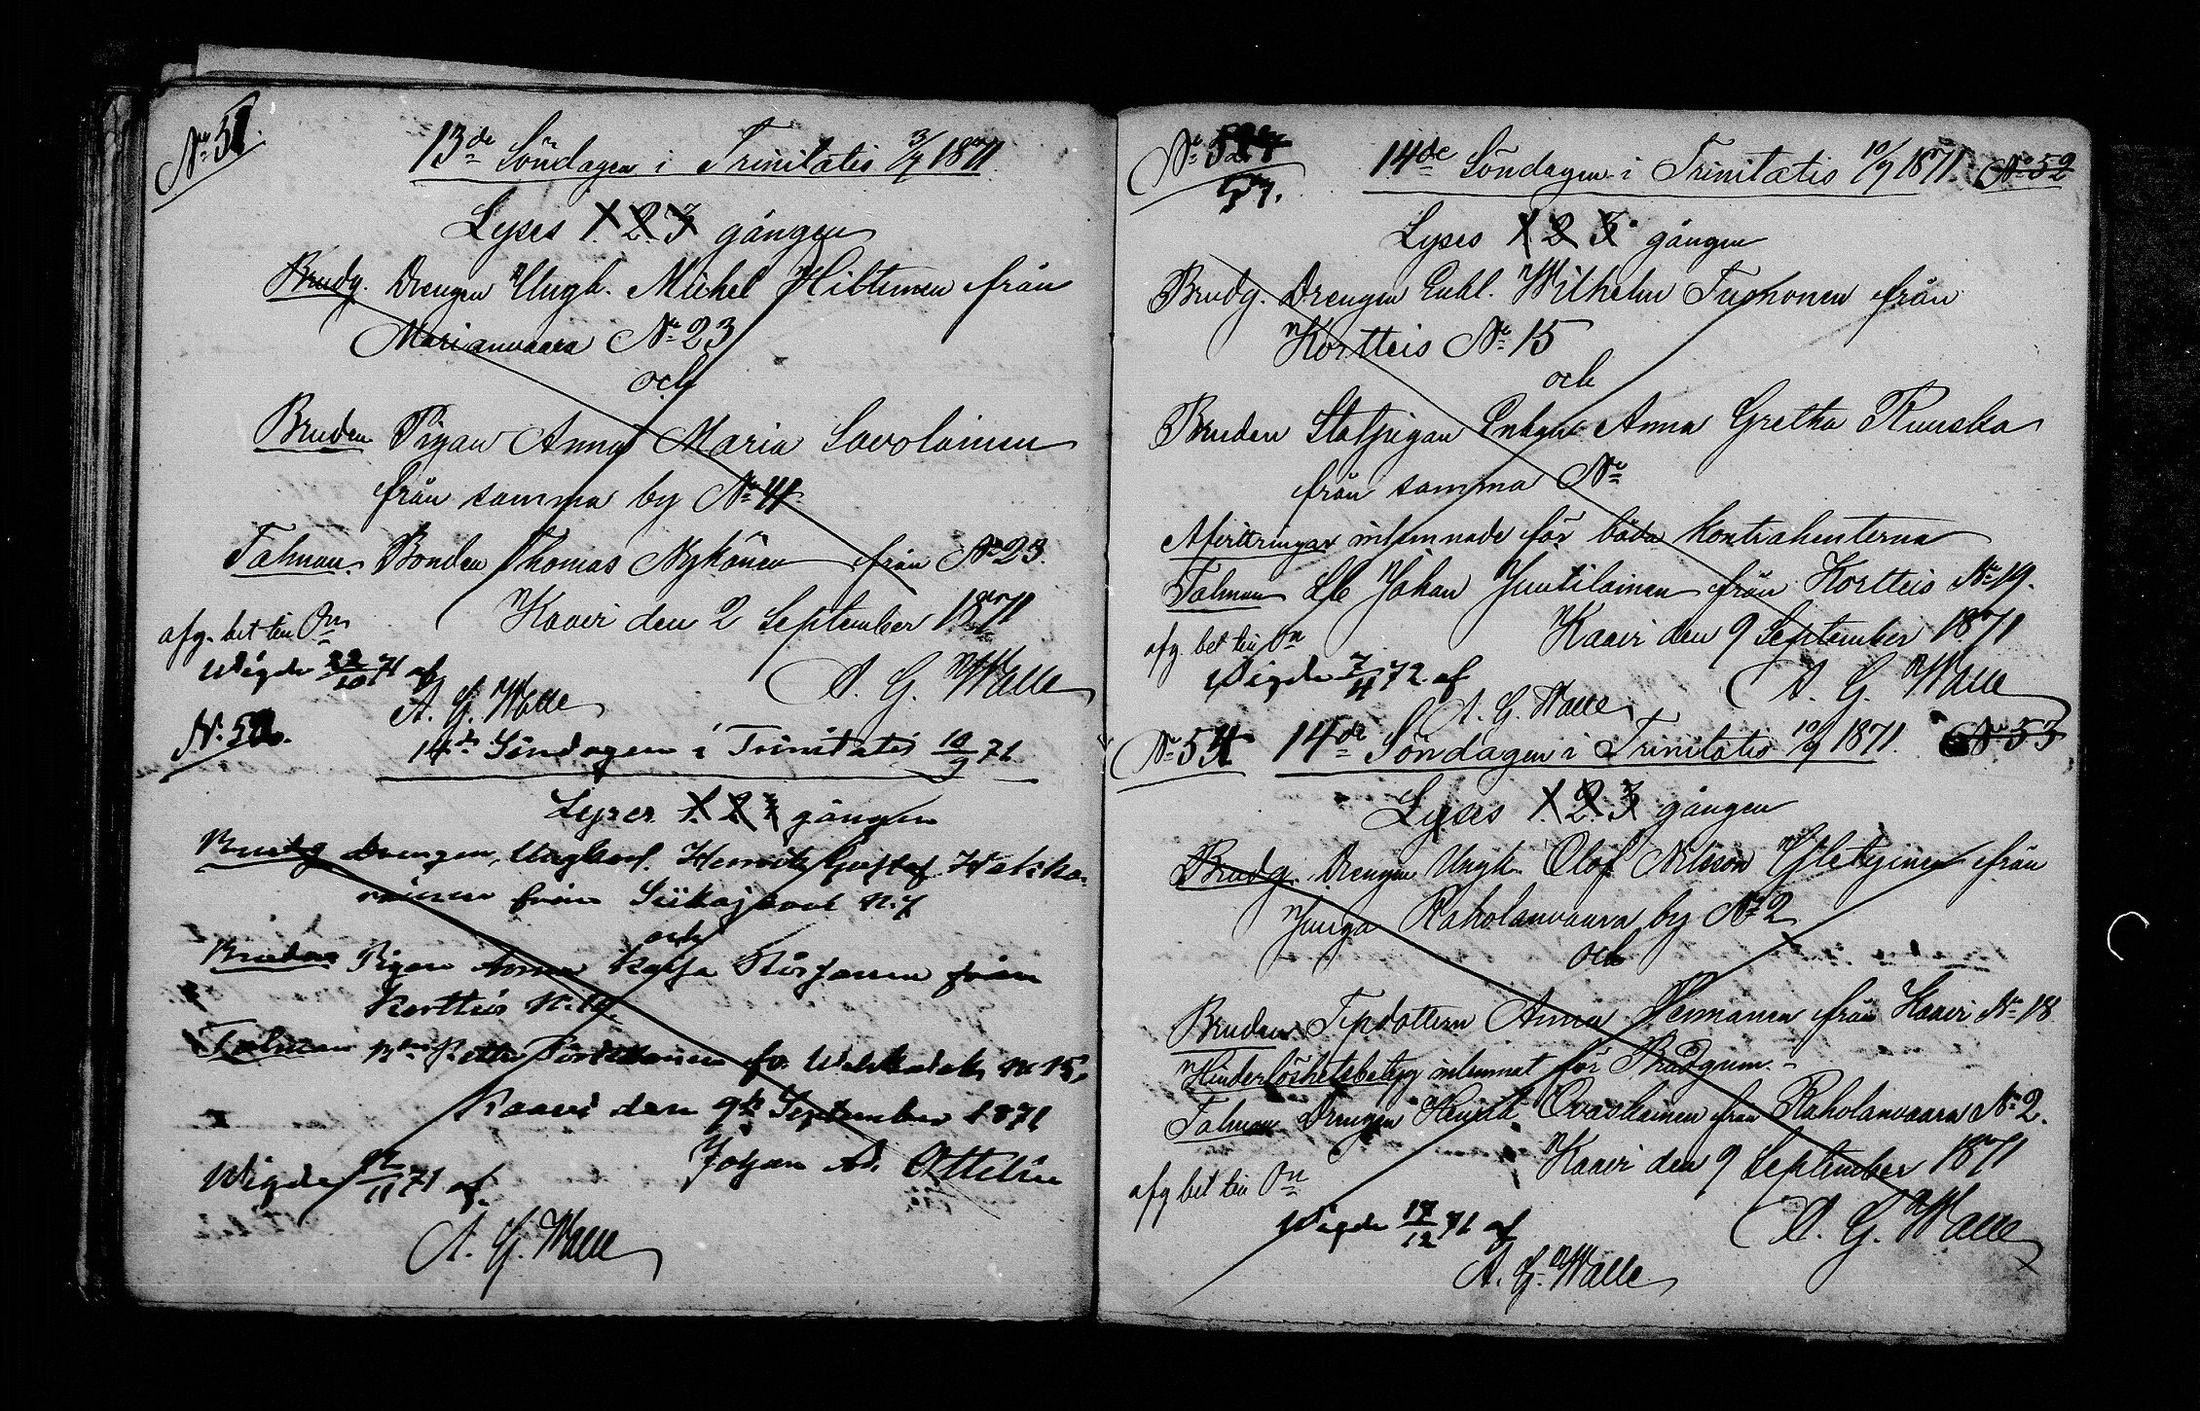 No 51.
13de Söndagen i Trinitatis 3/9 1871
Lyses 1. 2. 3 gången
Brudg. Drengen Ungk. Michel Hiltunen från
Marianvaara No 23
och
Bruden Pigan Anna Maria Savolainen
från samma by No 11.
Talman. Bonden Thomas Nykänen från No 23.
Kaavi den 2 September 1871
afg. bet till
Wigde 22/10 71 af
A. G. Walle
A. G. Walle
N. 52.
14de Söndagen i Trinitatis 10/9 71
Lyses 1. 2. 3 gången
Brudg Drengen, Ungkarl. Henrik Gustaf
från Siikajärvi N. 7
och
Bruden Pigan Anna Kajsa från
Kortteis N. 10.
Talman Petter fr. No 15,
Kaavi den 9de September 1871
Johan Ad. Ottelin
Wigde 12/11 71 af
A. G. Walle
No 53
14de Söndagen i Trinitatis 10/9 1871. No 52
Lyses 1. 2. 3 gången
Brudg. Drengen Enkl. Wilhelm Tuononen från
Kortteis No 15
och
Bruden Statpigan Enkan Anna Gretha Ruuska
från samma No
Afvittringar inlemnade för båda kontrahenterna
Talman Johan Juutilainen från Kortteis No 19.
Kaavi den 9 September 1871
afg. bet till
Wigde 7/4 72. af
A. G. Walle
A. G. Walle
No 54 14de Söndagen i Trinitatis 10/9 1871. No 53
Lyses 1. 2. 3 gången
Brudg. Drengen Ungk. Olof Nilsson från
Junga Raholanvaara by No 2
och
Bruden Torpdottern Anna från Kaavi No 18
Hinderlöshetsbetyg inlemnat för Brudgum.
Talman Drengen Henrik Ovaskainen från Raholanvaara No 2.
Kaavi den 9 September 1871
afg bet till
Wigde 17/12 71 af
A. G. Walle
A. G. Walle